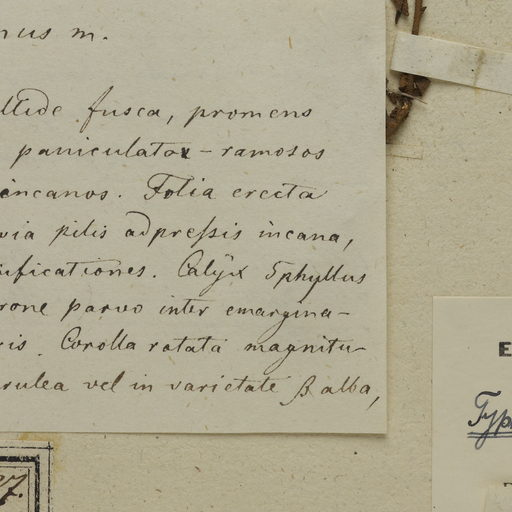 nus m.
llide fusca, promens
paniculato-ramosos
incanos. Folia erecta
via pilis adpreſsis incana,
ificationes. Calÿx 5phyllus
rone parvo inter emargina-
ris. Corolla rotata magnitu-
rulea vel in varietate β alba,
E
Typ
7.